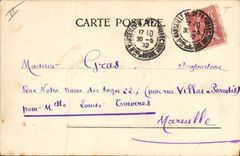 CARTE POSTALE
17 10
30 -8
12
17 10
30
Monsieur Gras, Propriétaire
Rue Notre Dame des Anges 22, (par rue Villas-Paradis)
pour Mlle Louise
Marseille